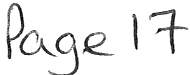 Page 17